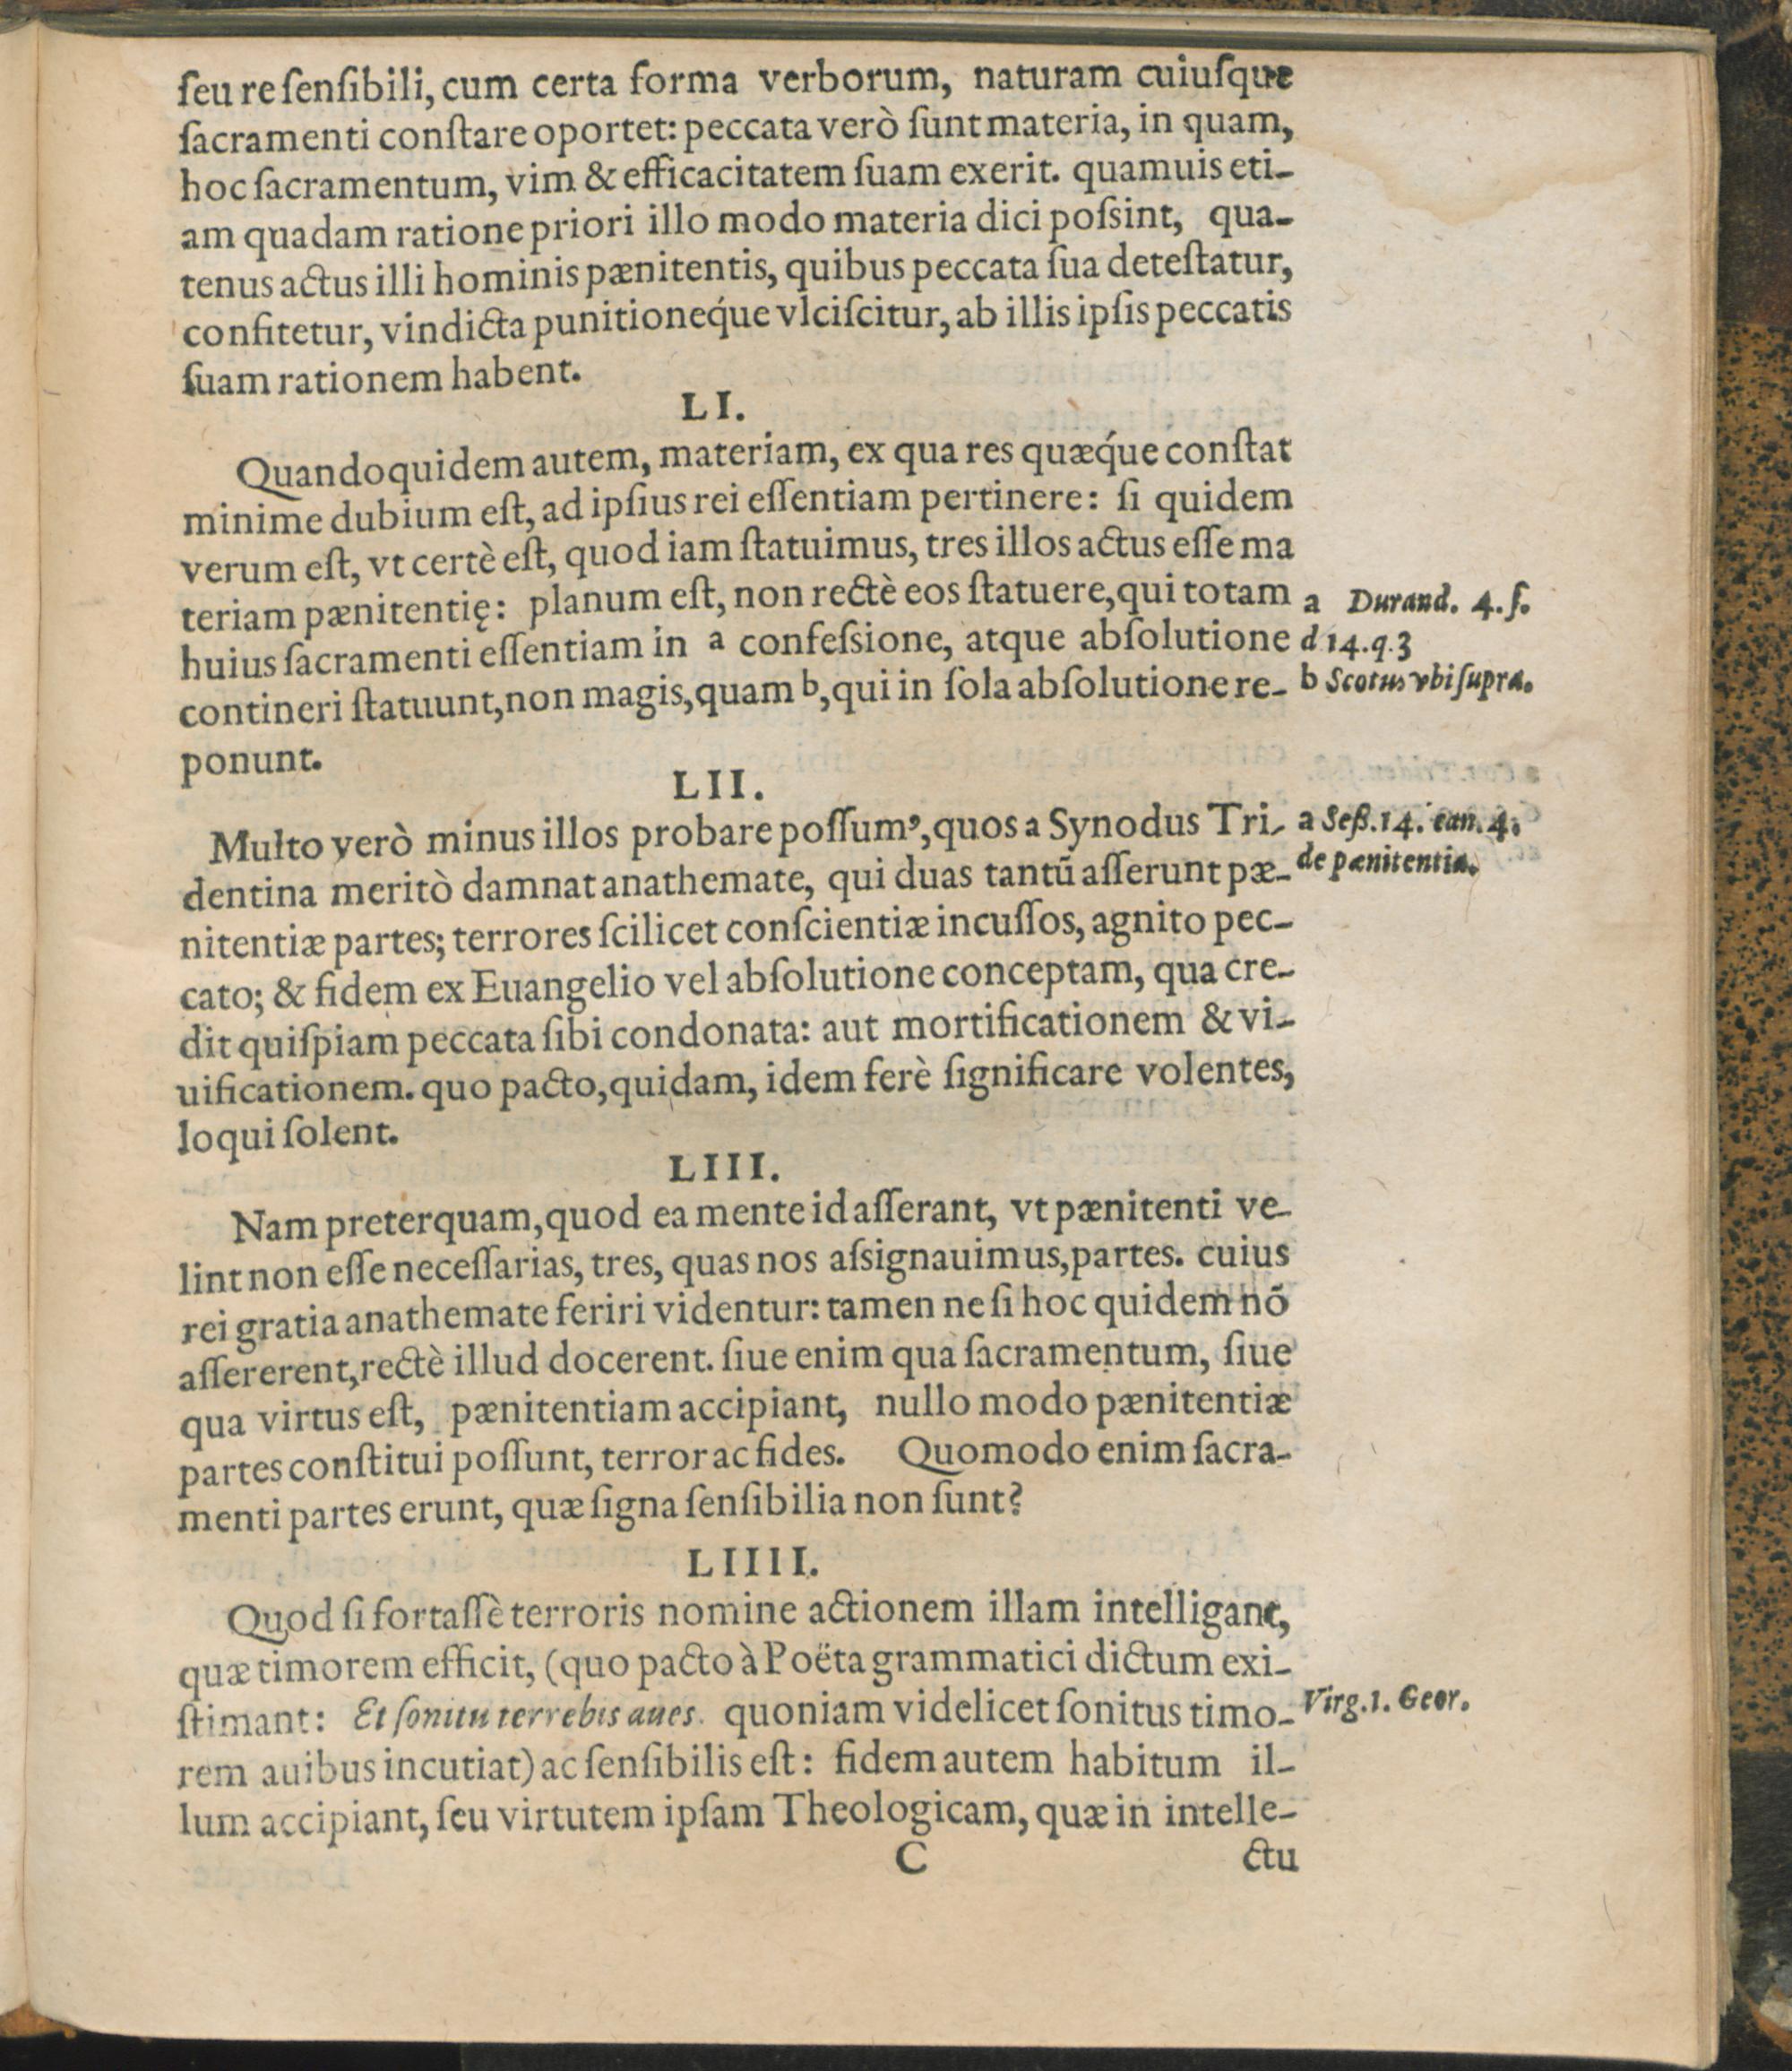 ſeu re ſenſibili, cum certa forma verborum, naturam cuiuſque
ſacramenti conſtare oportet: peccata verò ſunt materia, in quam,
hoc ſacramentum, vim & efficacitatem ſuam exerit. quamuis eti-
am quadam ratione priori illo modo materia dici poſsint, qua-
tenus actus illi hominis pænitentis, quibus peccata ſua deteſtatur,
confitetur, vindicta punitioneq́ue vlciſcitur, ab illis ipſis peccatis
ſuam rationem habent.
LI.
Quandoquidem autem, materiam, ex qua res quæq́ue conſtat
minime dubium eſt, ad ipſius rei eſſentiam pertinere: ſi quidem
verum eſt, vt certè eſt, quod iam ſtatuimus, tres illos actus eſſe ma
teriam pænitentię: planum eſt, non rectè eos ſtatuere, qui totam
huius ſacramenti eſſentiam in a confeſsione, atque abſolutione
contineri ſtatuunt, non magis, quam b, qui in ſola abſolutione re-
ponunt.
a Durand. 4. ſ.
d 14. q. 3
b Scotus vbi ſupra.
LII.
Multo verò minus illos probare poſſumꝰ, quos a Synodus Tri-
dentina meritò damnat anathemate, qui duas tantū aſſerunt pæ-
nitentiæ partes; terrores ſcilicet conſcientiæ incuſſos, agnito pec-
cato; & fidem ex Euangelio vel abſolutione conceptam, qua cre-
dit quiſpiam peccata ſibi condonata: aut mortificationem & vi-
uificationem. quo pacto, quidam, idem ferè ſignificare volentes,
loqui ſolent.
a Seß. 14. can. 4.
de pænitentia.
LIII.
Nam preterquam, quod ea mente id aſſerant, vt pænitenti ve-
lint non eſſe neceſſarias, tres, quas nos aſsignauimus, partes. cuius
rei gratia anathemate feriri videntur: tamen ne ſi hoc quidem nō
aſſererent, rectè illud docerent. ſiue enim qua ſacramentum, ſiue
qua virtus eſt, pænitentiam accipiant, nullo modo pænitentiæ
partes conſtitui poſſunt, terror ac fides. Quomodo enim ſacra-
menti partes erunt, quæ ſigna ſenſibilia non ſunt?
LIIII.
Quod ſi fortaſſè terroris nomine actionem illam intelligant,
quæ timorem efficit, (quo pacto à Poëta grammatici dictum exi-
ſtimant: Et ſonitu terrebis aues. quoniam videlicet ſonitus timo-
rem auibus incutiat) ac ſenſibilis eſt: fidem autem habitum il-
lum accipiant, ſeu virtutem ipſam Theologicam, quæ in intelle-
Virg. 1. Geor.
C ctu